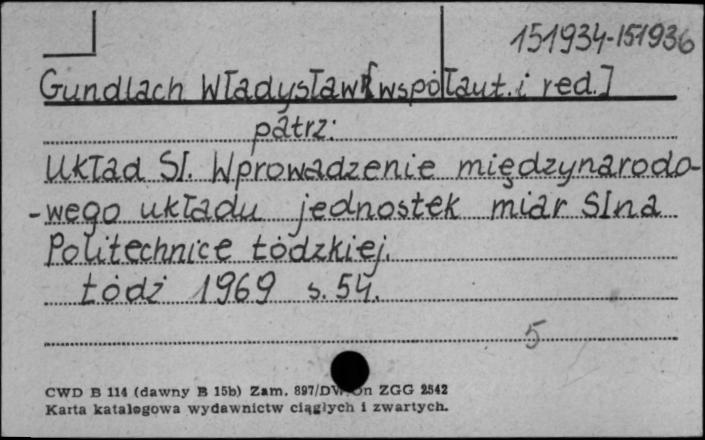 151934-151936
Gundlach Władysław [współaut. i red.]
patrz:
Układ SI. Wprowadzenie międzynarodo-
-wego układu jednostek miar SI na
Politechnice Łódzkiej.
Łódź 1969 s. 54.
5
CWD B 114 (dawny B 15b) Zam. 897/DW/On ZGG 2542
Karta katalogowa wydawnictw ciągłych i zwartych.